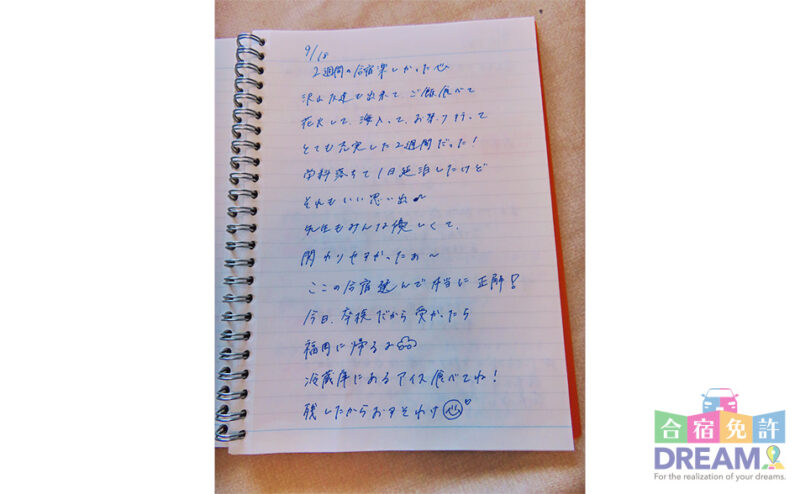 9/18
2週間の合宿楽しかった
沢山友達も出来て、ご飯食べて
花火して、海入って、お祭り行って
とても充実した2週間だった!
学科落ちて1日延泊したけど
それもいい思い出
先生もみんな優しくて、
関わりやすかったぁ〜
ここの合宿選んで本当に正解!
今日、卒検だから受かったら
福岡に帰るね
冷蔵庫にあるアイス食べてね!
残したからおすそわけ
合宿免許
DREAM
For the realization of your dreams.